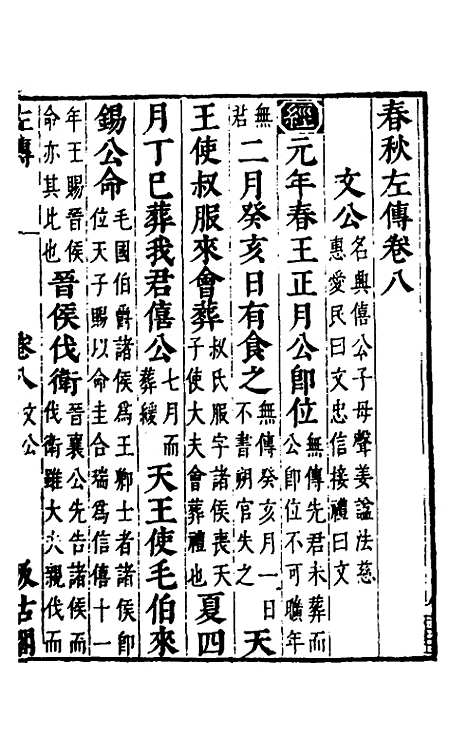 春秋左傳卷八
文公名興僖公子母聲姜謚法慈惠愛民曰文忠信接禮曰文
經元年春王正月公即位無傳先君未葬而公即位不可曠年
無君二月癸亥日有食之無傳癸亥月一日不書朔官失之天
王使叔服來會葬叔氏服字諸侯喪天子使大夫會葬禮也夏四
月丁巳葬我君僖公七月而葬緩天王使毛伯來
錫公命毛國伯爵諸侯爲王卿士者諸侯即位天子賜以命圭合瑞爲信僖十一
年王賜晉侯命亦其比也晉侯伐衛晉襄公先告諸侯而伐衛雖大夫親伐而
左傳 卷八文公 汲古閣